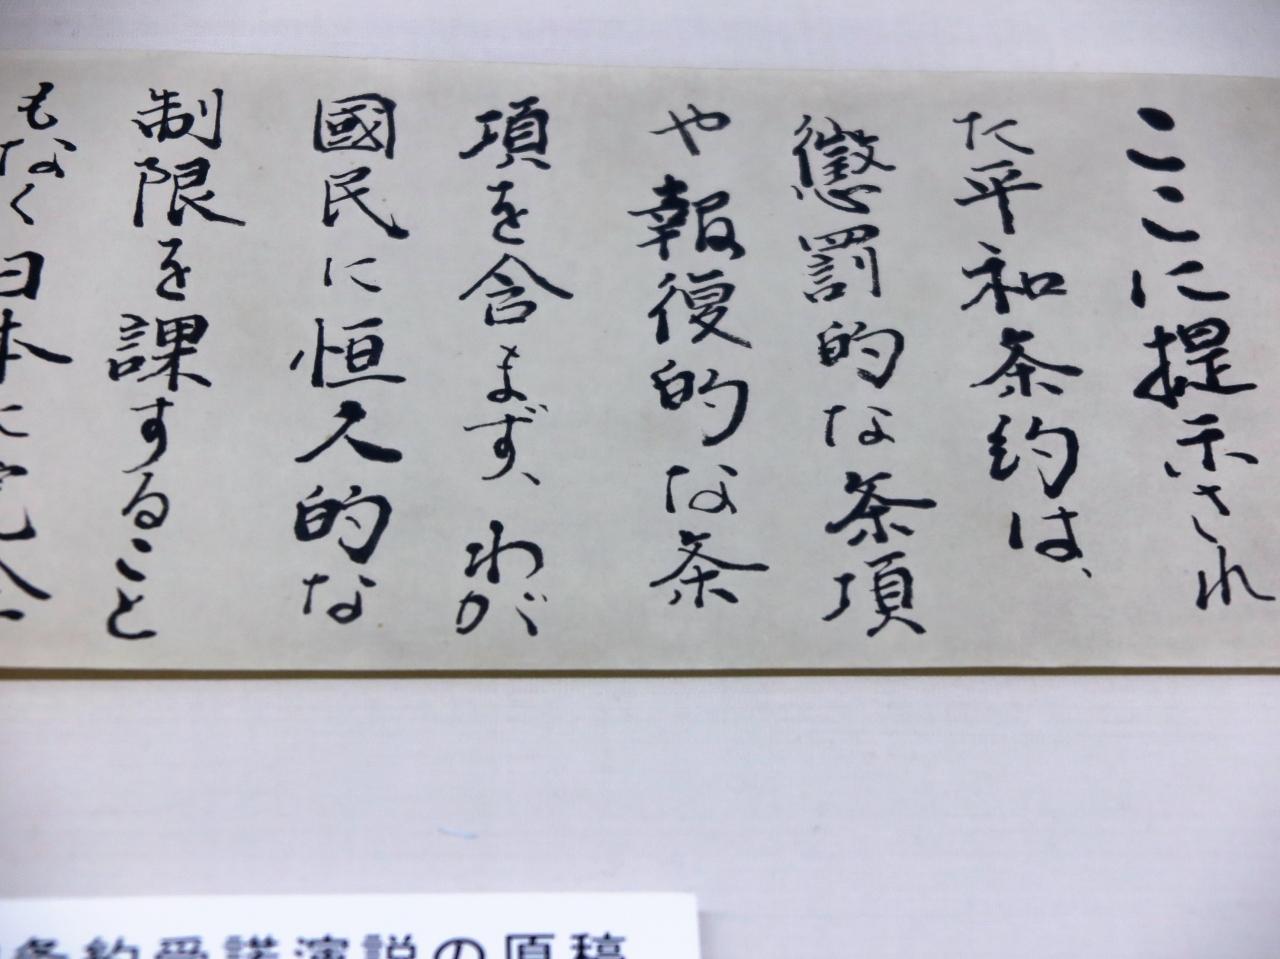 ここに提示され
た平和条約は、
懲罰的な条項
や報復的な条
項を含まず、わが
國民に恒久的な
制限を課すること
もなく日本に完全
条約受諾演説の原稿